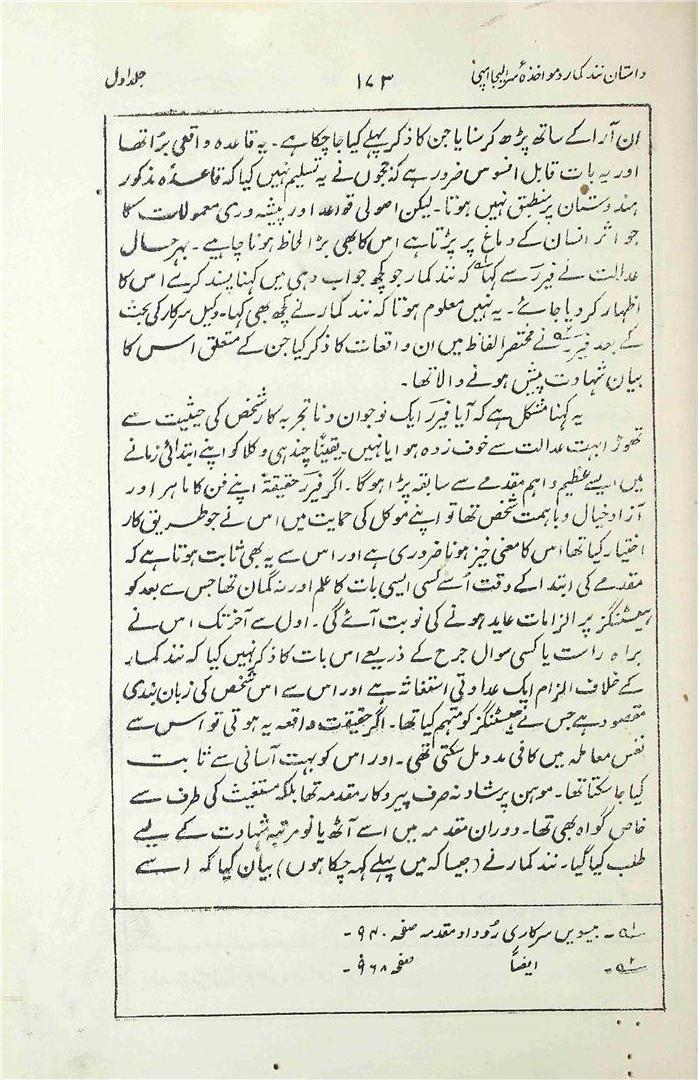 داستان نند کمار و مواخذۂ سر الیجا امپی ۱۷۳ جلد اول
ان آرا کے ساتھ پڑھ کر سنایا جن کا ذکر پہلے کیا جا چکا ہے۔ یہ قاعدہ واقعی بُرا تھا
اور یہ بات قابل افسوس ضرور ہے کہ ججوں نے یہ تسلیم نہیں کیا کہ قاعدۂ مذکور
ہندوستان پر منطبق نہیں ہوتا۔ لیکن اصولی قواعد اور پیشہ وری معمولات کا
جو اثر انسان کے دماغ پر پڑتا ہے اس کا بھی بڑا لحاظ ہونا چاہیے۔ بہر حال
عدالت نے فیرر سے کہا ۱؎ کہ نند کمار جو کچھ جواب دہی میں کہنا پسند کرے اس کا
اظہار کر دیا جائے۔ یہ نہیں معلوم ہوتا کہ نند کمار نے کچھ بھی کہا۔ وکیل سرکار کی بحث
کے بعد فیرر ۲؎ نے مختصر الفاظ میں ان واقعات کا ذکر کیا جن کے متعلق اس کا
بیان شہادت پیش ہونے والا تھا۔
یہ کہنا مشکل ہے کہ آیا فیرر ایک نوجوان و ناتجربہ کار شخص کی حیثیت سے
تھوڑا بہت عدالت سے خوف زدہ ہوا یا نہیں۔ یقیناً چند ہی وکلا کو اپنے ابتدائی زمانے
میں ایسے عظیم و اہم مقدمے سے سابقہ پڑا ہوگا۔ اگر فیرر حقیقۃً اپنے فن کا ماہر اور
آزاد خیال و باہمت شخص تھا تو اپنے موکل کی حمایت میں اس نے جو طریق کار
اختیار کیا تھا اس کا معنی خیز ہونا ضروری ہے اور اس سے یہ بھی ثابت ہوتا ہے کہ
مقدمے کی ابتدا کے وقت اُسے کسی ایسی بات کا علم اور نہ گمان تھا جس سے بعد کو
ہیسٹنگز پر الزامات عاید ہونے کی نوبت آئے گی۔ اول سے آخر تک اس نے
براہ راست یا کسی سوال جرح کے ذریعے اس بات کا ذکر نہیں کیا کہ نند کمار
کے خلاف الزام ایک عداوتی استغاثہ ہے اور اس سے اس شخص کی زبان بندی
مقصود ہے جس نے ہیسٹنگز کو متہم کیا تھا۔ اگر حقیقت واقعہ یہ ہوتی تو اس سے
نفس معاملہ میں کافی مدد مل سکتی تھی۔ اور اس کو بہت آسانی سے ثابت
کیا جا سکتا تھا۔ موہن پرشاد نہ صرف پیروکار مقدمہ تھا بلکہ مستغیث کی طرف سے
خاص گواہ بھی تھا۔ دوران مقدمہ میں اسے آٹھ یا نو مرتبہ شہادت کے لیے
طلب کیا گیا۔ نند کمار نے (جیسا کہ میں پہلے کہہ چکا ہوں) بیان کیا کہ اسے
۱؎ ۔ بیسویں سرکاری رُوداد مقدمہ صفحہ ۹۴۰۔
۲؎ ۔ ایضاً صفحہ ۹۶۸۔